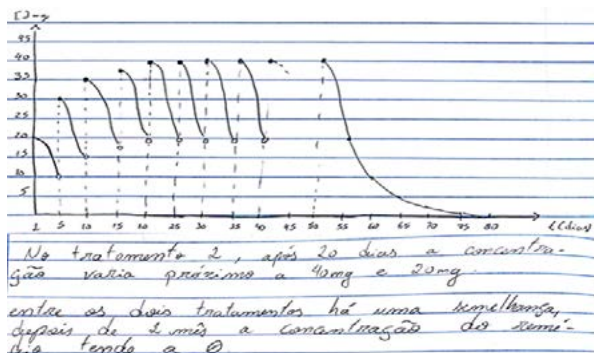 45
40
35
30
25
20
15
10
5
5 10 15 20 25 30 35 40 45 50 55 60 65 70 75 80 t(dias)
No tratamento 2, após 20 dias a concentra-
ção varia próximo a 40mg e 20mg.
entre os dois tratamentos há uma semelhança,
depois de 1 mês a concentração do remé-
dio tende a 0.